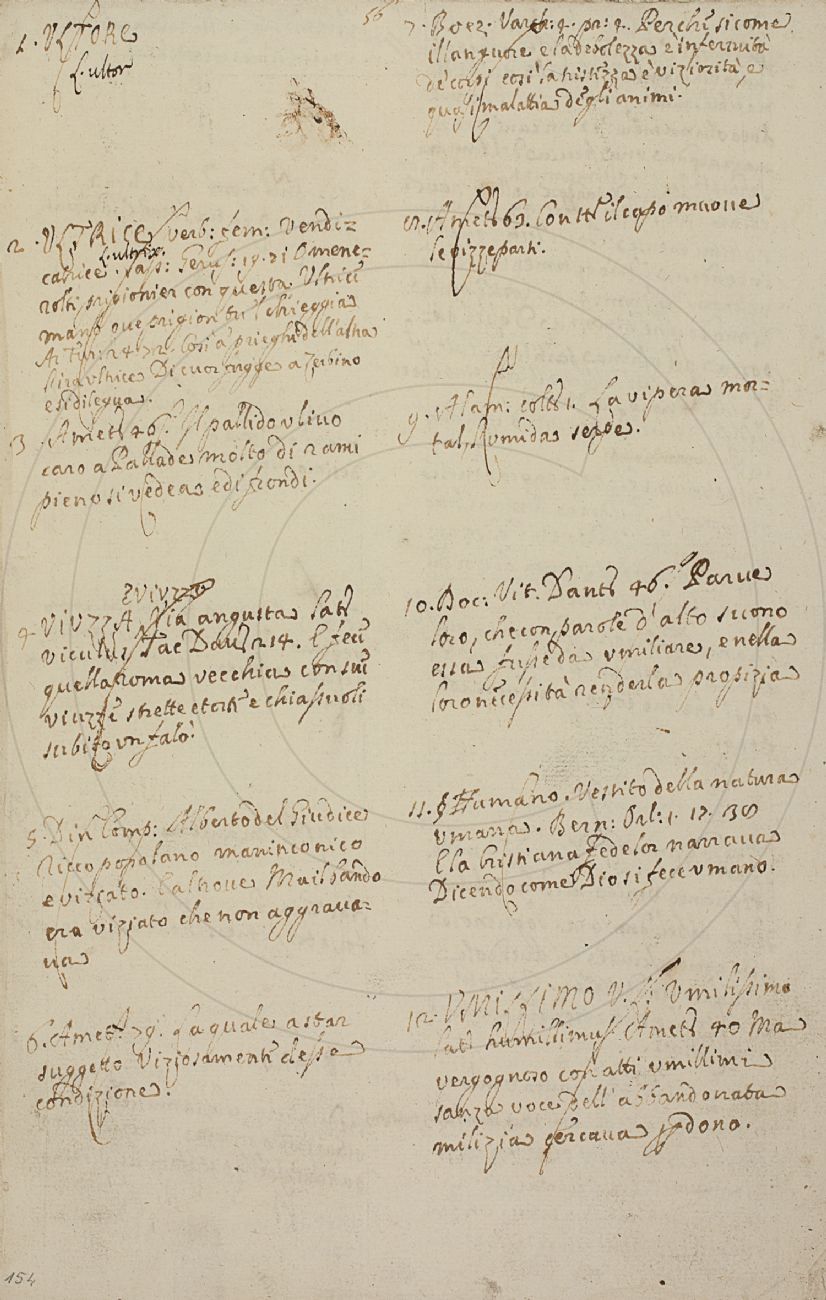 56
1. VLTORE
L. ultor
2. VLTRICE verb: fem: Vendi=
L. ultrix.
catrice. Tass: Gerus: 19. 21 O mene=
rolti prigionier con questa Ultrice
mano que prigion tu 'l chieggia
Ar Fur: 24. 72. Così a' prieghi dell'altra
l'ira ultrice Di cuor fugge a Zerbino
e si dilegua.
3 Amet. 46. Il pallido ulivo
caro a Pallade molto di rami
pieno si vedea e di frondi.
E VIUZZO
4. VIUZZA, Via angusta Lat.
viculus Tac Dav. 214. E feci
quella Roma vecchia con sue
viuzze strette e torte e chiassuoli
subito un falò.
5. Din Comp: Alberto del Giudice
Ricco popolano maninconico
e viziato. E altrove Mai sbando
era viziato che non aggrava=
va
6. Amet. 79. La quale a star
suggetto viziosamente elessa
condizione.
7. Boez. Varch: 4. pr: 4. Perchè sicome
il languore e la debolezza è infermità
de' corpi così la tristizza è viziorità, e
quasi malattia degli animi.
8. Amet. 63. Con tt.e il capo muove
le vizze parti.
9. Alam: colt. 1. La vipera mor=
tal, l'umida serpe.
10. Boc: Vit. Dant. 46. Parve
loro, che con parole d'alto suono
essa fusse da umiliare, e nella
loro necessità renderla propizia
11. § Humano. Vestito della natura
umana. Bern: Orl: 1. 17. 38
E la Cristiana fede lor narrava
Dicendo come Dio si fece umano.
12. VMISSIMO V. L. Umilissimo
Lat. humillimus Amet. 40 Ma
vergognoso con atti umillimi
sanza voce dell'abbandonata
milizia cercava perdono.
154